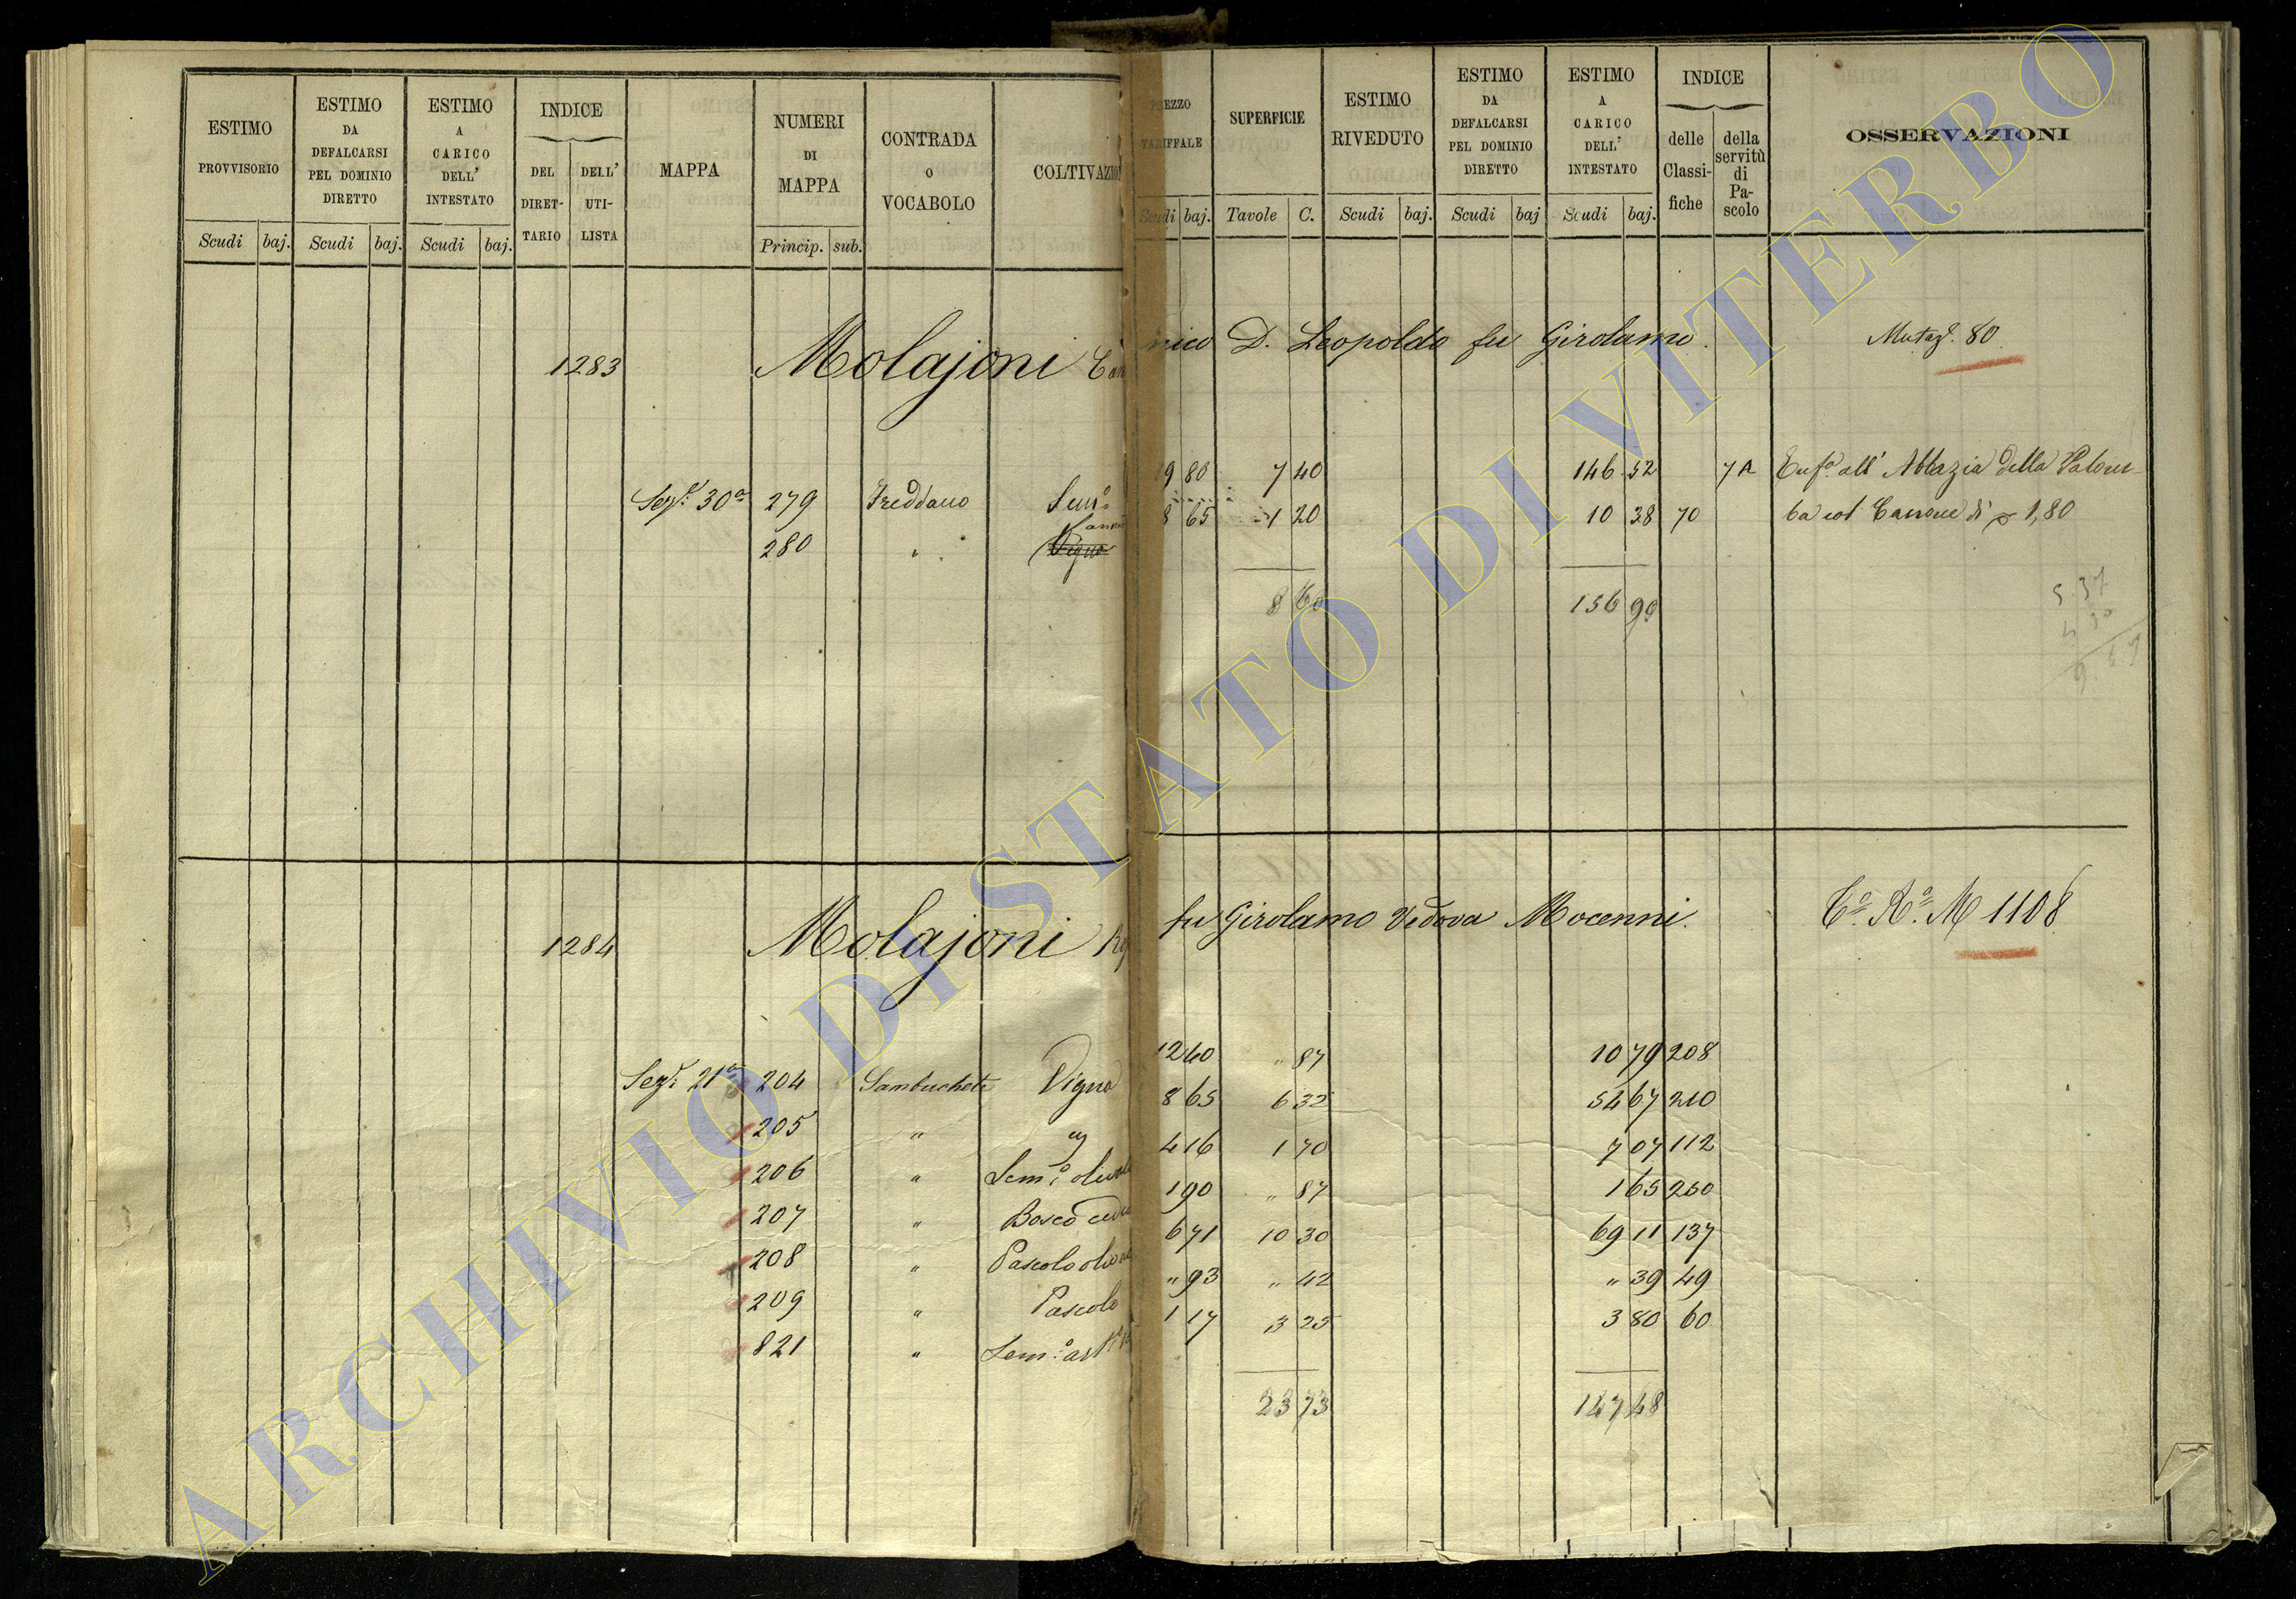 ESTIMO PROVVISORIO
ESTIMO DA DEFALCARSI PEL DOMINIO DIRETTO
ESTIMO A CARICO DELL' INTESTATO
INDICE
DEL DIRETTARIO
DELL' UTILISTA
MAPPA
NUMERI DI MAPPA
CONTRADA o VOCABOLO
COLTIVAZIO
EZZO TARIFFALE
SUPERFICIE
ESTIMO RIVEDUTO
ESTIMO DA DEFALCARSI PEL DOMINIO DIRETTO
ESTIMO A CARICO DELL' INTESTATO
INDICE
delle Classifiche
della servitù di Pascolo
OSSERVAZIONI
Scudi baj. Scudi baj. Scudi baj. Princip. sub. Scudi baj. Tavole C. Scudi baj. Scudi baj Scudi baj.
1283 Molajoni Can nico D. Leopoldo fu Girolamo. Mutaz. 80
Sez. 30a 279 Freddano Sem.o 9 80 7 40 146 52 7A Enf.a all' Abbazia della Palom
280 " Vigna 8 65 1 20 10 38 70 ba col Canone di 1,80
8 60 156 90
1284 Molajoni fu Girolamo Vedova Mocenni. C.o R.o M 1108
Sez. 21a 204 Sambuchete Vigna 12 40 " 87 10 79 208
205 " " 8 65 6 32 54 67 210
206 " Sem.o oliva 4 16 1 70 7 07 112
207 " Bosco ced 1 90 " 87 1 65 250
208 " Pascolo oliva 6 71 10 30 69 11 137
209 " Pascolo " 93 " 42 " 39 49
821 " Sem.o 1 17 3 25 3 80 60
23 73 147 48
ARCHIVIO DI STATO DI VITERBO